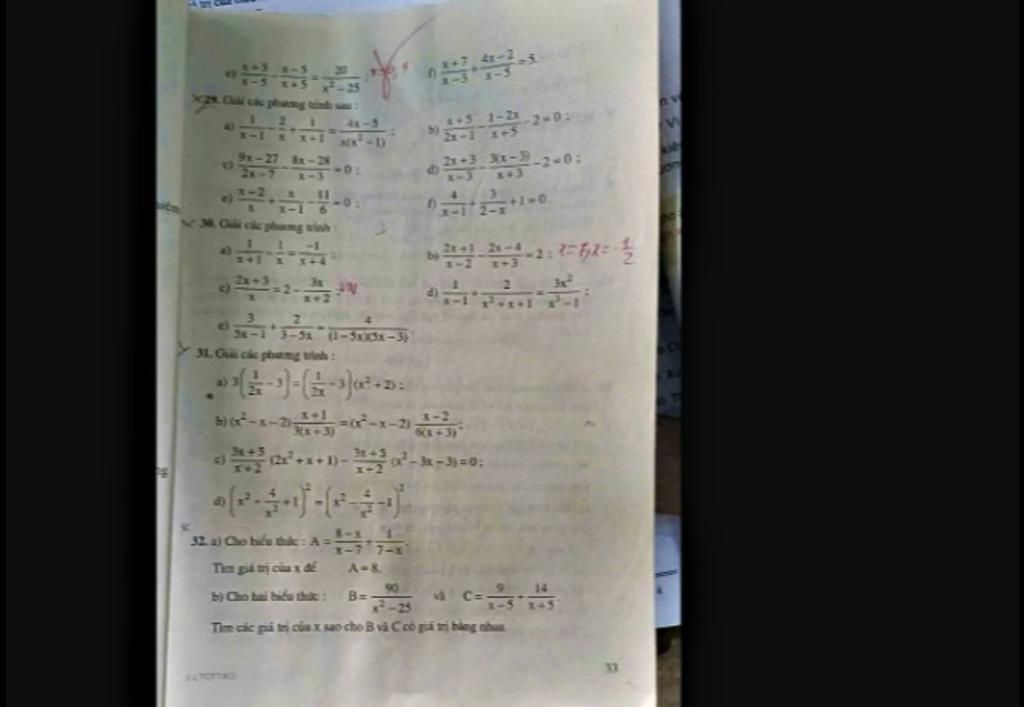 e) \frac{x+5}{x-5} - \frac{x-5}{x+5} = \frac{20}{x^2-25} ; f) \frac{x+7}{x-3} + \frac{4x-2}{x-5} = 5.
29. Giải các phương trình sau :
a) \frac{1}{x-1} - \frac{2}{x} + \frac{1}{x+1} = \frac{4x-5}{x(x^2-1)} ; b) \frac{x+5}{2x-1} - \frac{1-2x}{x+5} - 2 = 0 ;
c) \frac{9x-27}{2x-7} - \frac{8x-28}{x-3} = 0 ; d) \frac{2x+3}{x-3} - \frac{3(x-3)}{x+3} - 2 = 0 ;
e) \frac{x-2}{x} + \frac{x}{x-1} - \frac{11}{6} = 0 ; f) \frac{4}{x-1} + \frac{3}{2-x} + 1 = 0.
30. Giải các phương trình :
a) \frac{1}{x+1} - \frac{1}{x} = \frac{-1}{x+4} ; b) \frac{2x+1}{x-2} - \frac{2x-4}{x+3} = 2 ;
c) \frac{2x+3}{x} = 2 - \frac{3x}{x+2} ; d) \frac{1}{x-1} + \frac{2}{x^2+x+1} = \frac{3x^2}{x^3-1} ;
e) \frac{3}{5x-1} + \frac{2}{3-5x} = \frac{4}{(1-5x)(5x-3)}.
31. Giải các phương trình :
a) 3(\frac{1}{2x} - 3) = (\frac{1}{2x} - 3)(x^2+2) ;
b) (x^2-x-2)\frac{x+1}{3(x+3)} = (x^2-x-2)\frac{x-2}{6(x+3)} ;
c) \frac{3x+5}{x+2}(2x^2+x+1) - \frac{3x+5}{x+2}(x^2-3x-3) = 0 ;
d) (x^2 + \frac{4}{x^2} + 1)^2 = (x^2 - \frac{4}{x^2} - 1)^2
32. a) Cho biểu thức : A = \frac{8-x}{x-7} + \frac{1}{7-x}.
Tìm giá trị của x để A = 8.
b) Cho hai biểu thức : B = \frac{90}{x^2-25} và C = \frac{9}{x-5} + \frac{14}{x+5}.
Tìm các giá trị của x sao cho B và C có giá trị bằng nhau.
33